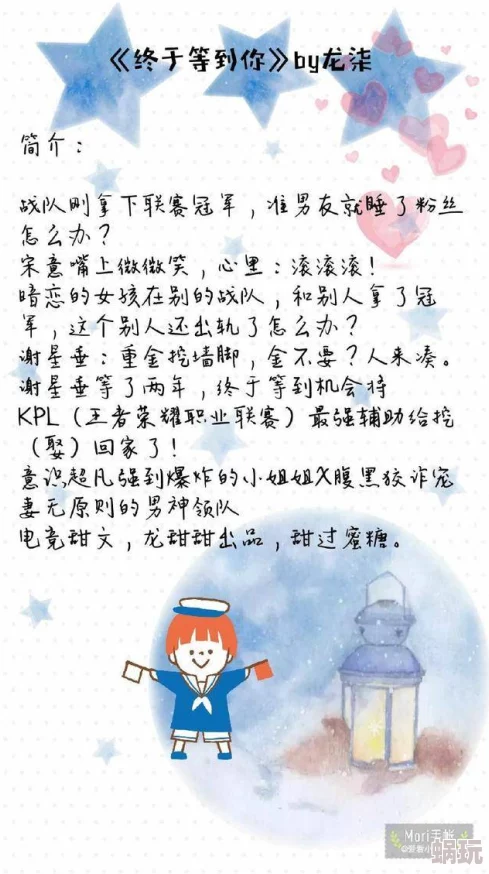 《终于等到你》by龙柒
简介：
战队刚拿下联赛冠军，准男友就睡了粉丝
怎么办？
宋意嘴上微微笑，心里：滚滚滚！
暗恋的女孩在别的战队，和别人拿了冠
军，这个别人还出轨了怎么办？
谢星垂：重金挖墙脚，金不要？人来凑。
谢星垂等了两年，终于等到机会将
KPL（王者荣耀职业联赛）最强辅助给挖
（娶）回家了！
意识超凡强到爆炸的小姐姐X腹黑狡诈宠
妻无原则的男神领队
电竞甜文，龙甜甜出品，甜过蜜糖。
Mori手帐
蜗玩